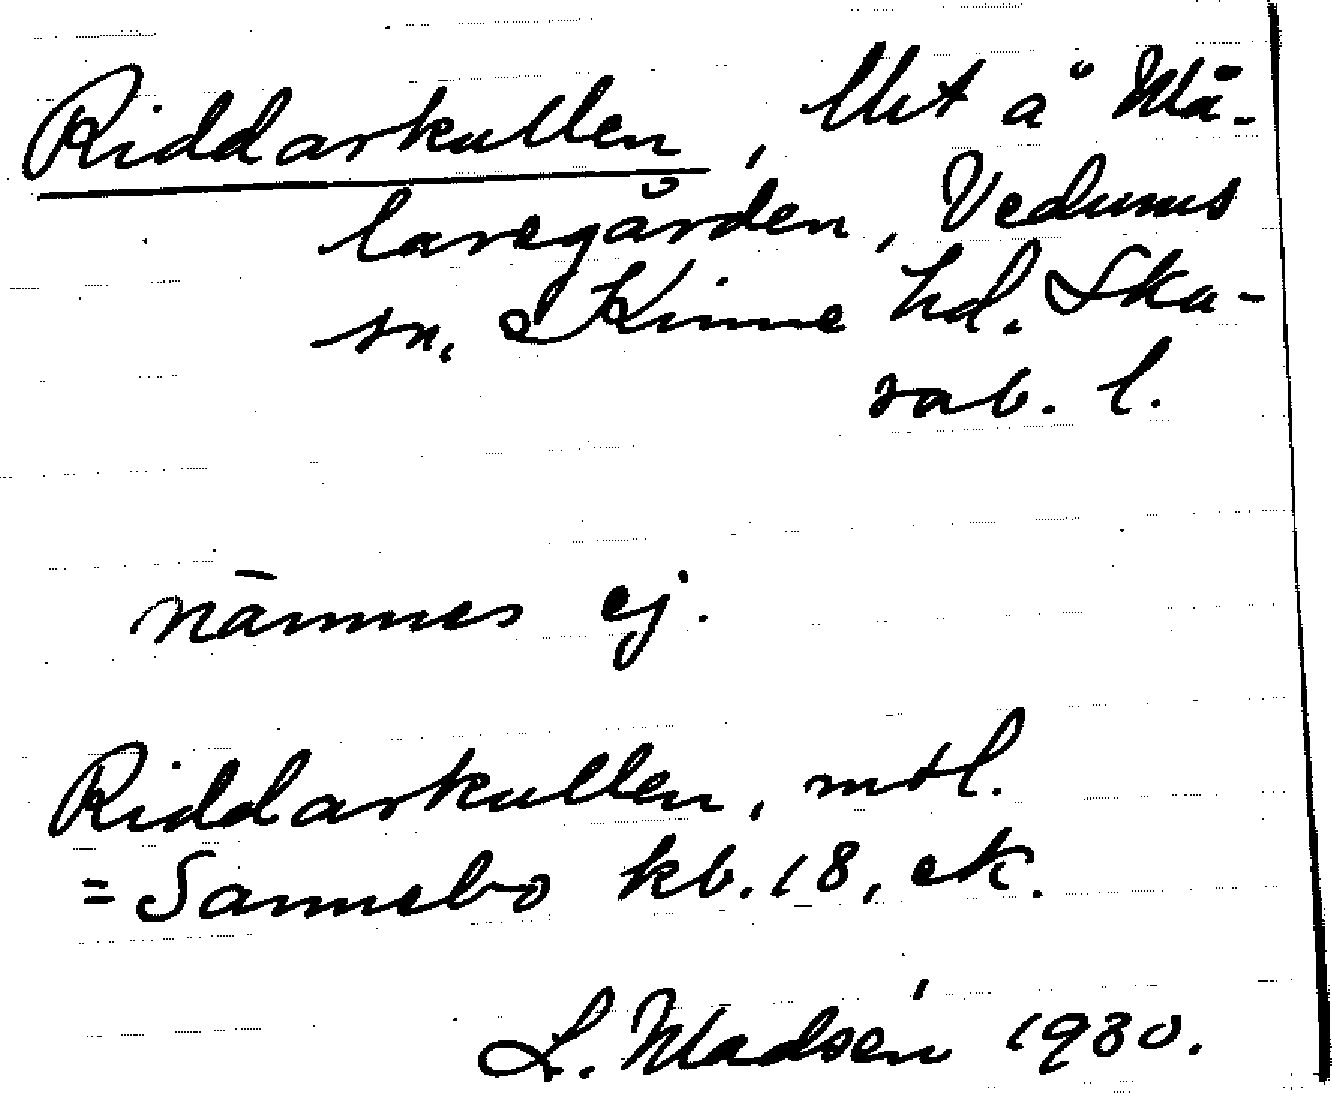 Riddarkullen, lht å Må-
laregården, Vedums
sn, Kinne hd. Ska-
rab. l.
nämnes ej.
Riddarkullen, mtl.
= Sannebo kb. 18, ek.
L. Madsén 1930.